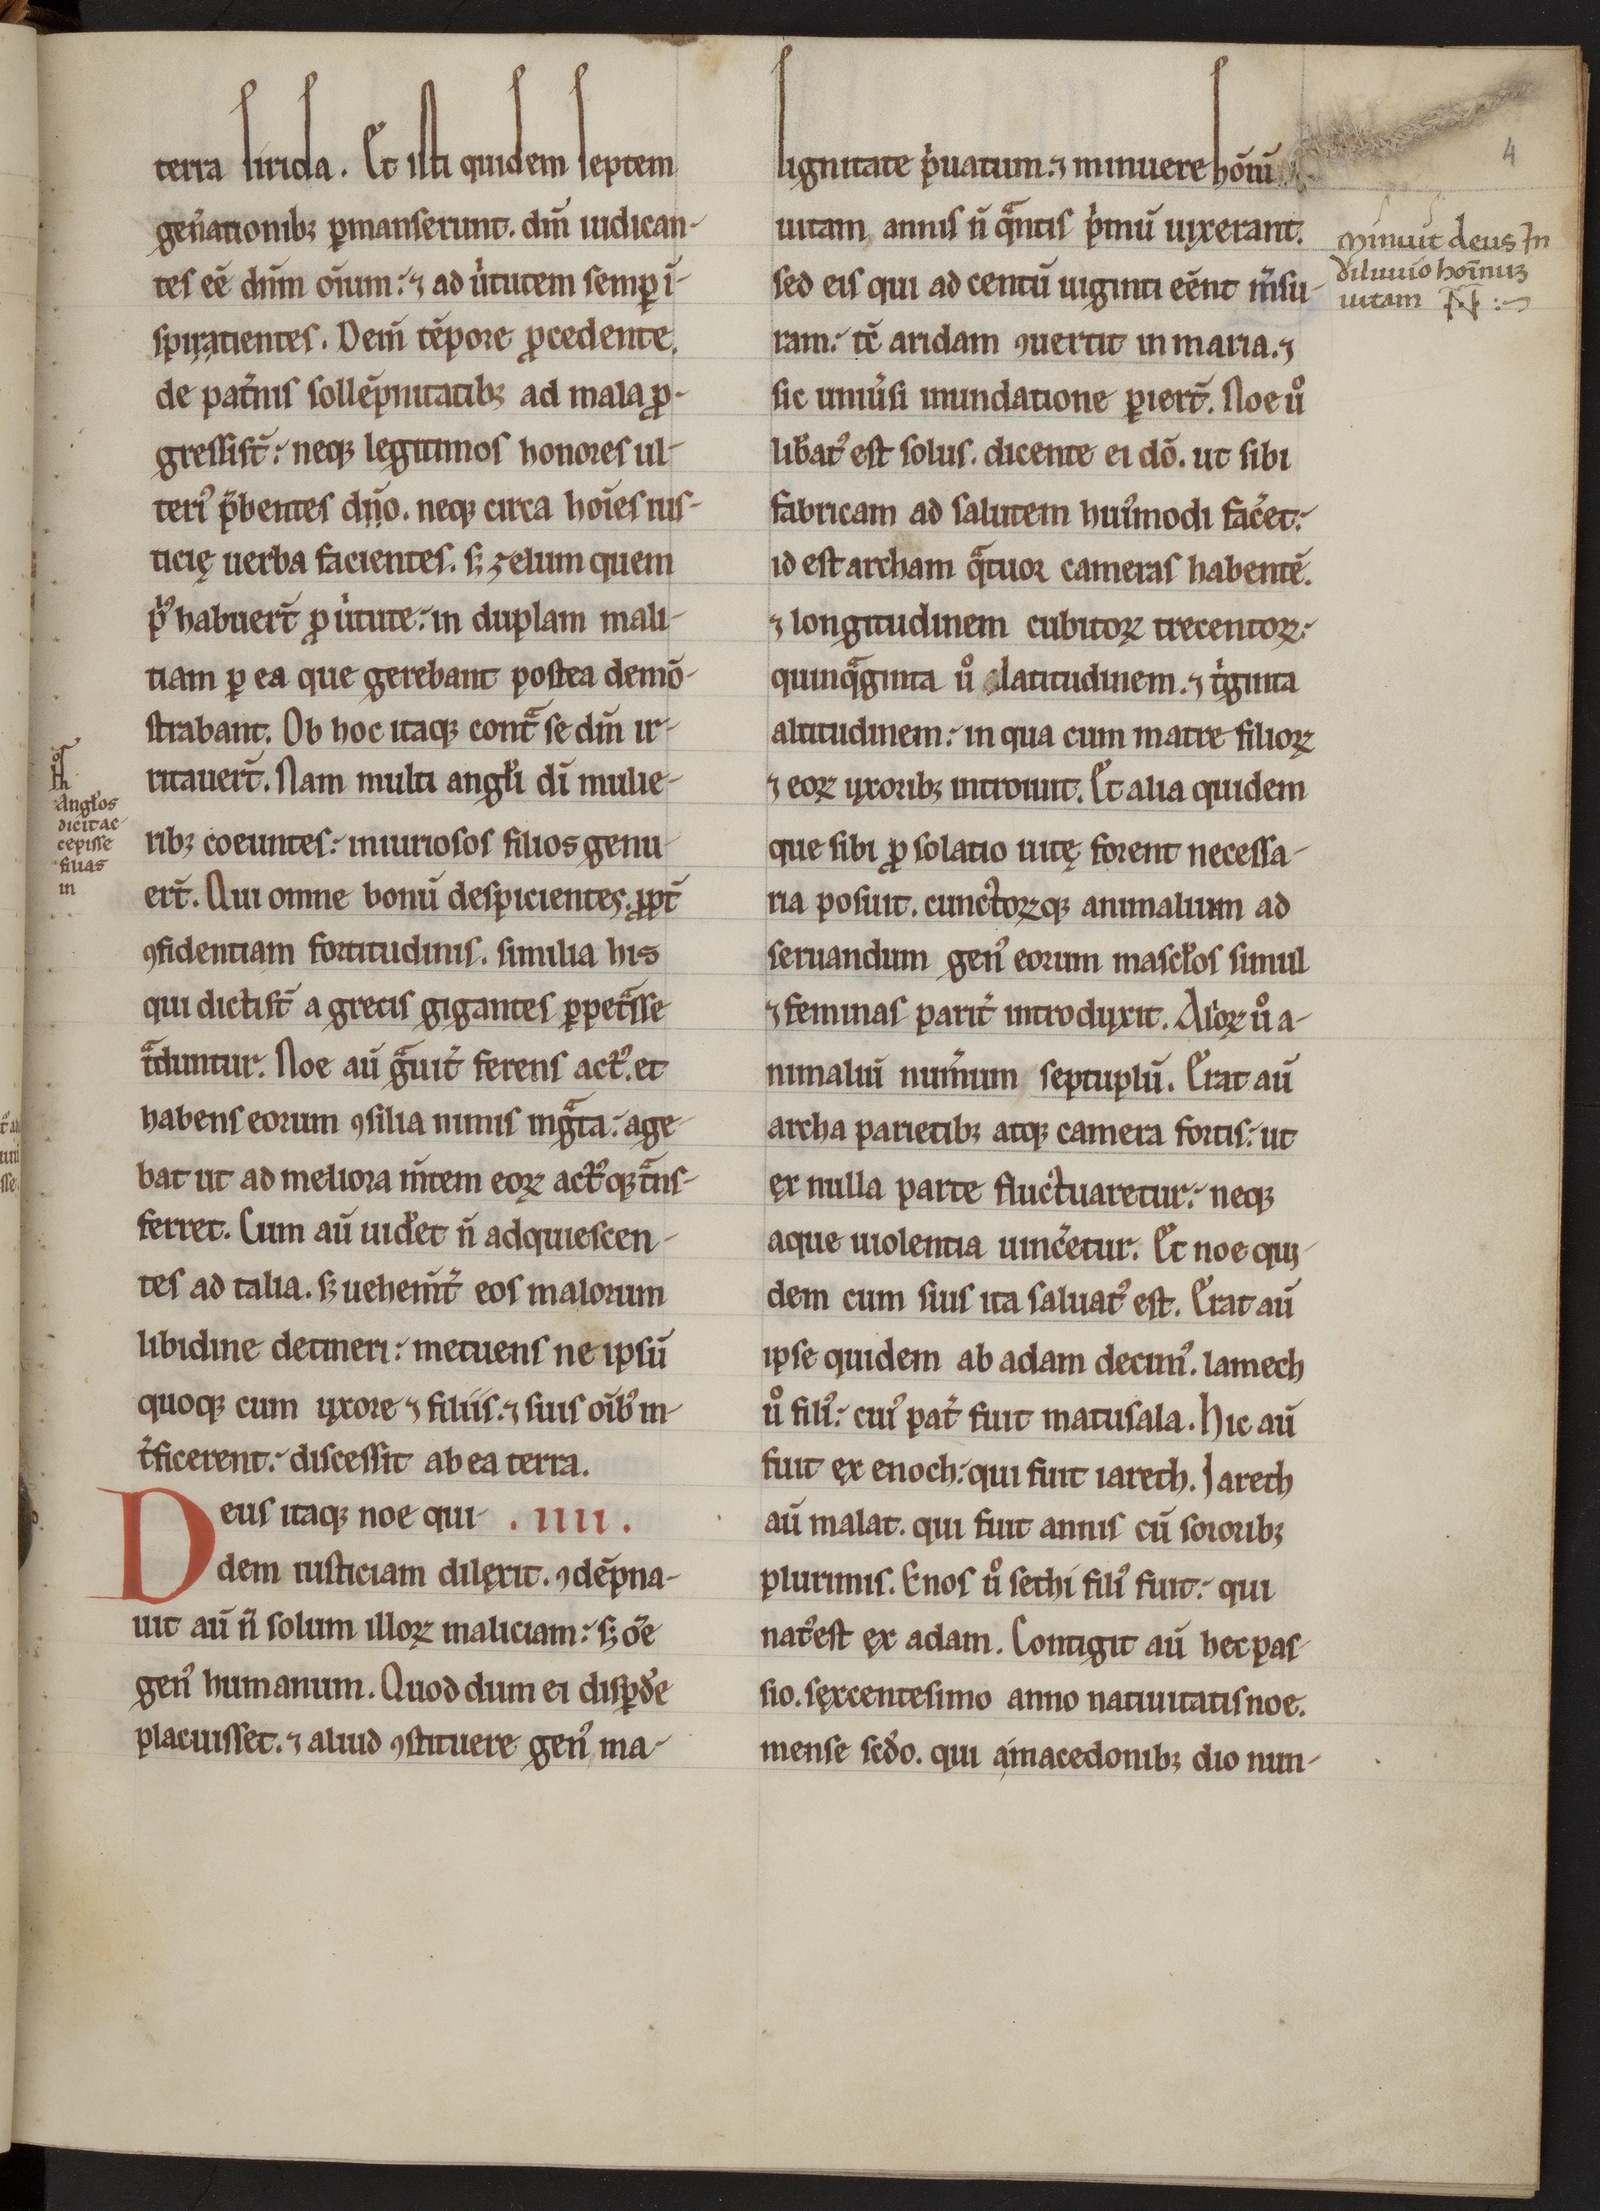 terra sirida. Et isti quidem septem
gen̄ationibꝫ ꝑmanserunt. dm̄ iudican-
tes eē dn̄m oīum: ⁊ ad uͥtutem semꝑ ī-
spiratientes. Dein̄ tēpore ꝓcedente.
de pat̓nis sollēpnitatibꝫ ad mala ꝓ-
gressist̄: neqꝫ legitimos honores ul-
teri᾽ p̄bentes dn̄o. neqꝫ circa hoīes ius-
ticię uerba facientes. sꝫ zelum quem
pͥ᾽ habuert̄ ꝓ uͥtute: in duplam mali-
tiam ꝑ ea que gerebant postea demō-
strabant. Ob hoc itaqꝫ contᷓ se dm̄ ir-
ritauert̄. Nam multi angl̓i dī mulie-
ribꝫ coeuntes: iniuriosos filios genu-
ert̄. Qui omne bonū despicientes. ꝓpt̄
ꝯfidentiam fortitudinis. similia his
qui dictist̄ a grecis gigantes ꝑpetᷓsse
tᷓduntur. Noe aū gᷓuit̓ ferens act᾽. et
habens eorum ꝯsilia nimis ingᷓta: age-
bat ut ad meliora m̄tem eoꝝ act᾽qꝫ tᷓns-
ferret. Cum aū uid̓et n̄ adquiescen-
tes ad talia. sꝫ uehem̄t̓ eos malorum
libidine detineri: metuens ne ipsū
quoqꝫ cum uxore ⁊ filiis. ⁊ suis oīb᾽ in-
t̓ficerent: discessit ab ea terra.
Deus itaqꝫ noe qui- .IIII.
dem iusticiam dilexit. ꝯdēpna-
uit aū n̄ solum illoꝝ maliciam: sꝫ oē
gen᾽ humanum. Quod dum ei disꝑd̓e
placuisset. ⁊ aliud ꝯstituere gen᾽ ma-
lignitate pͥuatum: ⁊ minuere hōīū
uitam annis n̄ qᷓntis pͥmū uixerant.
sed eis qui ad centū uiginti eēnt m̄su-
ram: tē aridam ꝯuertit in maria. ⁊
sic uniu̓si inundatione ꝑiert̄. Noe uͦ
lib̓at᾽ est solus. dicente ei dō. ut sibi
fabricam ad salutem hui᾽modi fac̓et:
id est archam qᷓtuor cameras habentē.
⁊ longitudinem cubitoꝝ trecentoꝝ:
quinqᷓginta uͦ latitudinem. ⁊ tͥginta
altitudinem: in qua cum matre filioꝝ
⁊ eoꝝ uxoribꝫ introiuit. Et alia quidem
que sibi ꝓ solatio uitę forent necessa-
ria posuit. cunctoꝝqꝫ animalium ad
seruandum gen᾽ eorum mascl̓os simul
⁊ feminas parit̓ introduxit. Alioꝝ uͦ a-
nimaliū num̓um septuplū. Erat aū
archa parietibꝫ atqꝫ camera fortis: ut
ex nulla parte fluctuaretur: neqꝫ
aque uiolentia uinc̓etur. Et noe qui-
dem cum suis ita saluat᾽ est. Erat aū
ipse quidem ab adam decim᾽. lamech
uͦ fili᾽: cui᾽ pat̓ fuit matusala. Hic aū
fuit ex enoch: qui fuit iareth. Iareth
aū malat. qui fuit annis cū sororibꝫ
plurimis. Enos uͦ sethi fili᾽ fuit: qui
nat᾽est ex adam. Contigit aū hec pas-
sio. sexcentesimo anno natiuitatis noe.
mense scd̓o. qui a macedonibꝫ dio nun-
Angl̓os
dicit ac-
cepisse
filias
4
Minuit deus In
diluuio hoīnuꝫ
uitam